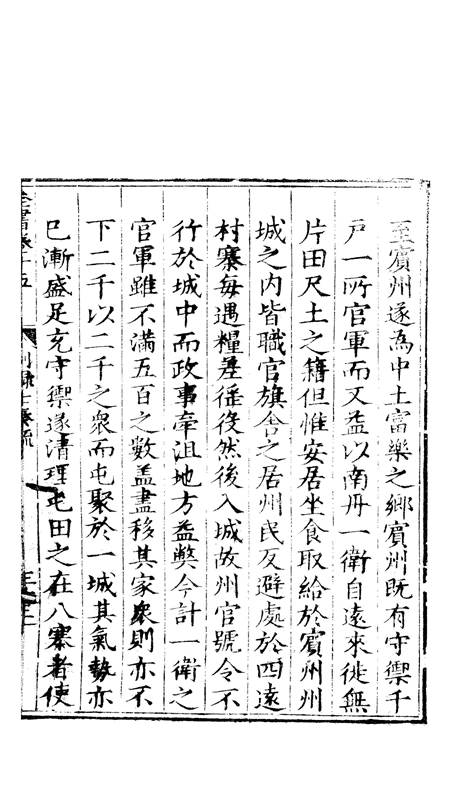 至賓州遂為中土富樂之鄉賓州既有守禦千
戶一所官軍而又益以南丹一衛自遠來徙無
片田尺土之籍但惟安居坐食取給於賓州州
城之內皆職官旗舍之居州民反避處於四遠
村寨每遇糧差徭役然後入城故州官號令不
行於城中而政事牽沮地方益弊今計一衛之
官軍雖不滿五百之數盖盡移其家衆則亦不
下二千以二千之衆而屯聚於一城其氣勢亦
已漸盛足充守禦遂清理屯田之在八寨者使
全書卷十五
別錄七奏疏